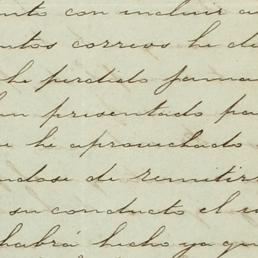 nto con incluir
ntos correos he de
he perdido jama
an presentado pa
e he aprovechado
ndose de remitir
su conducto el
habrá hecho ya qu